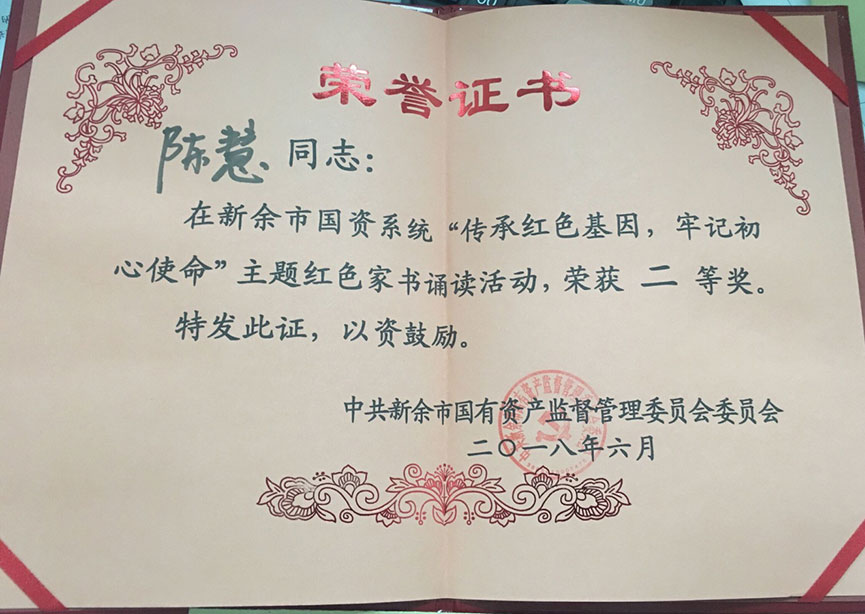 荣誉证书
陈慧 同志：
在新余市国资系统“传承红色基因，牢记初
心使命”主题红色家书诵读活动，荣获 二 等奖。
特发此证，以资鼓励。
中共新余市国有资产监督管理委员会委员会
二〇一八年六月